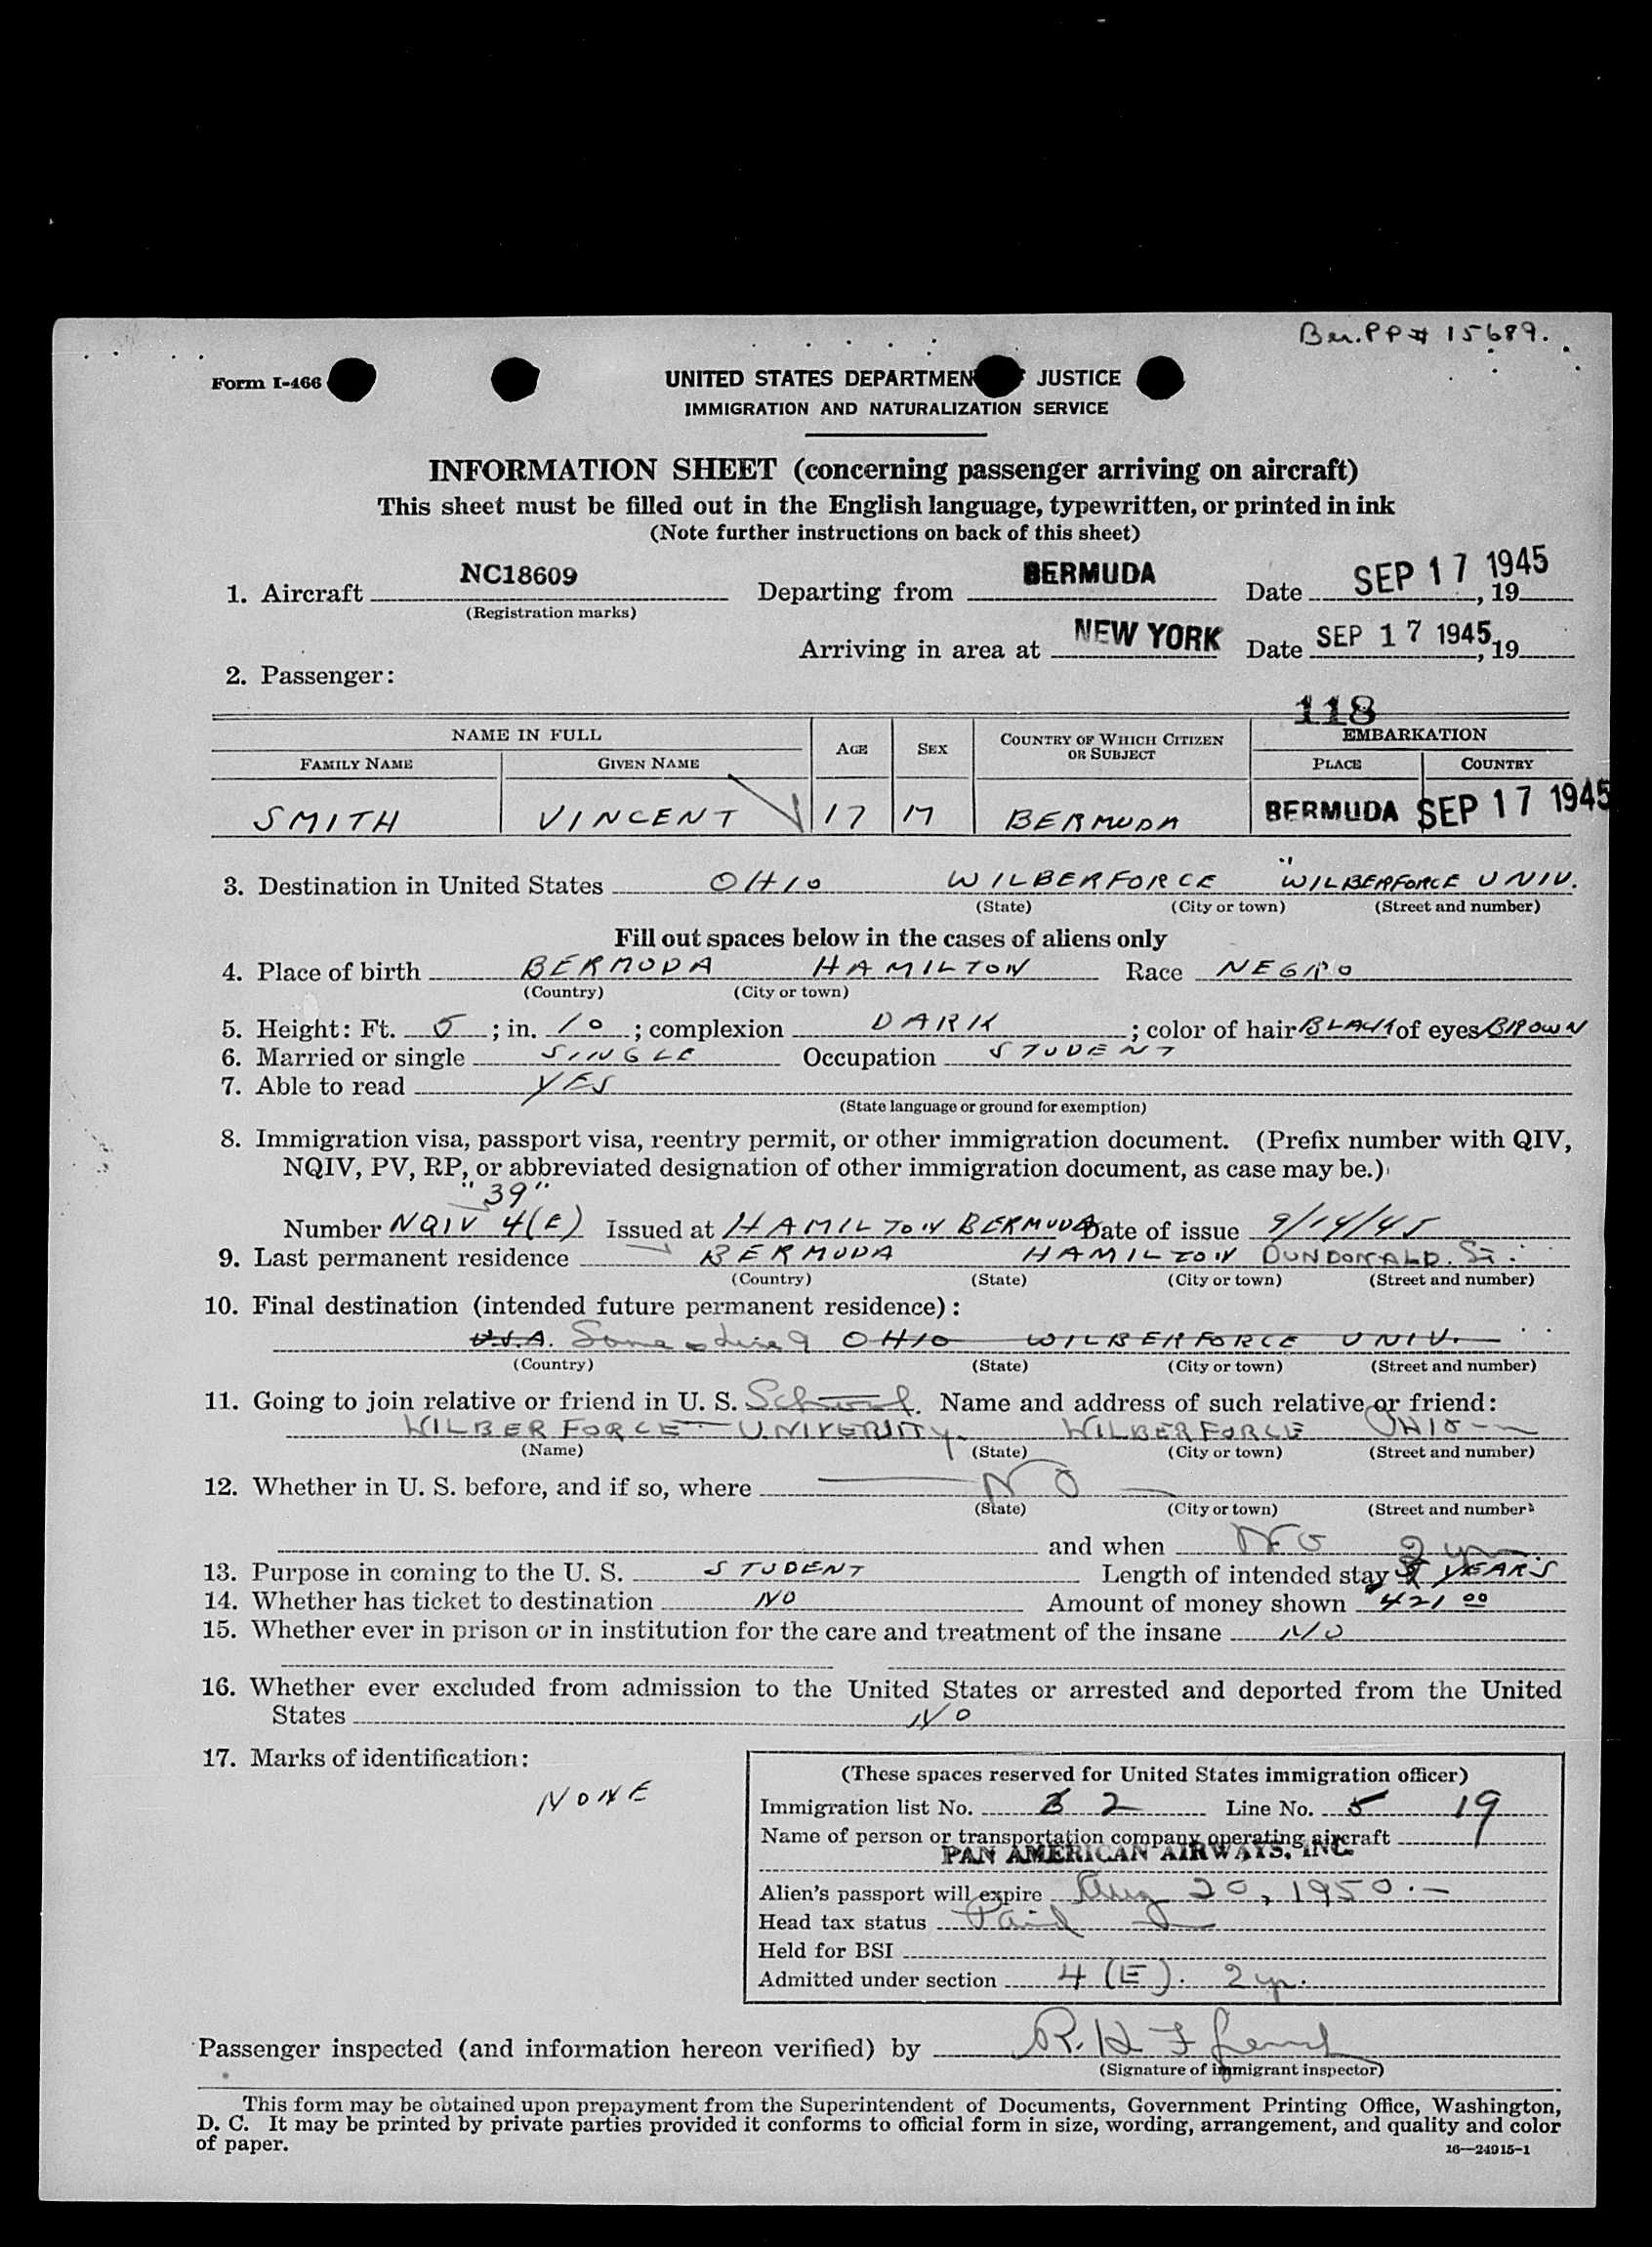 Ber. PP # 15689.
Form I-466 UNITED STATES DEPARTMEN JUSTICE
IMMIGRATION AND NATURALIZATION SERVICE
INFORMATION SHEET (concerning passenger arriving on aircraft)
This sheet must be filled out in the English language, typewritten, or printed in ink
(Note further instructions on back of this sheet)
1. Aircraft NC18609 Departing from BERMUDA Date SEP 17 1945, 19
(Registration marks)
Arriving in area at NEW YORK Date SEP 17 1945, 19
2. Passenger:
118
NAME IN FULL AGE SEX COUNTRY OF WHICH CITIZEN OR SUBJECT EMBARKATION
FAMILY NAME GIVEN NAME PLACE COUNTRY
SMITH VINCENT 17 M BERMUDA BERMUDA SEP 17 1945
3. Destination in United States OHIO WILBERFORCE WILBERFORCE UNIV.
(State) (City or town) (Street and number)
Fill out spaces below in the cases of aliens only
4. Place of birth BERMUDA HAMILTON Race NEGRO
(Country) (City or town)
5. Height: Ft. 5; in. 10; complexion DARK; color of hair BLACK of eyes BROWN
6. Married or single SINGLE Occupation STUDENT
7. Able to read YES
(State language or ground for exemption)
8. Immigration visa, passport visa, reentry permit, or other immigration document. (Prefix number with QIV,
NQIV, PV, RP, or abbreviated designation of other immigration document, as case may be.)
"39"
Number NQIV 4(E) Issued at HAMILTON BERMUDA Date of issue 9/14/45
9. Last permanent residence BERMUDA HAMILTON DUNDONALD. St.
(Country) (State) (City or town) (Street and number)
10. Final destination (intended future permanent residence):
U.S.A. Same as line 9 OHIO WILBERFORCE UNIV.
(Country) (State) (City or town) (Street and number)
11. Going to join relative or friend in U. S. School. Name and address of such relative or friend:
WILBERFORCE UNIVERSITY WILBERFORCE OHIO
(Name) (State) (City or town) (Street and number)
12. Whether in U. S. before, and if so, where NO
(State) (City or town) (Street and number)
and when NO 2 yrs.
13. Purpose in coming to the U. S. STUDENT Length of intended stay YEARS
14. Whether has ticket to destination NO Amount of money shown 421 00
15. Whether ever in prison or in institution for the care and treatment of the insane NO
16. Whether ever excluded from admission to the United States or arrested and deported from the United
States NO
17. Marks of identification:
NONE
(These spaces reserved for United States immigration officer)
Immigration list No. 2 Line No. 5 19
Name of person or transportation company operating aircraft
PAN AMERICAN AIRWAYS, INC.
Alien's passport will expire Aug 20, 1950.
Head tax status Paid
Held for BSI
Admitted under section 4 (E). 2 yr.
Passenger inspected (and information hereon verified) by R. H.
(Signature of immigrant inspector)
This form may be obtained upon prepayment from the Superintendent of Documents, Government Printing Office, Washington,
D. C. It may be printed by private parties provided it conforms to official form in size, wording, arrangement, and quality and color
of paper.
16—24915-1